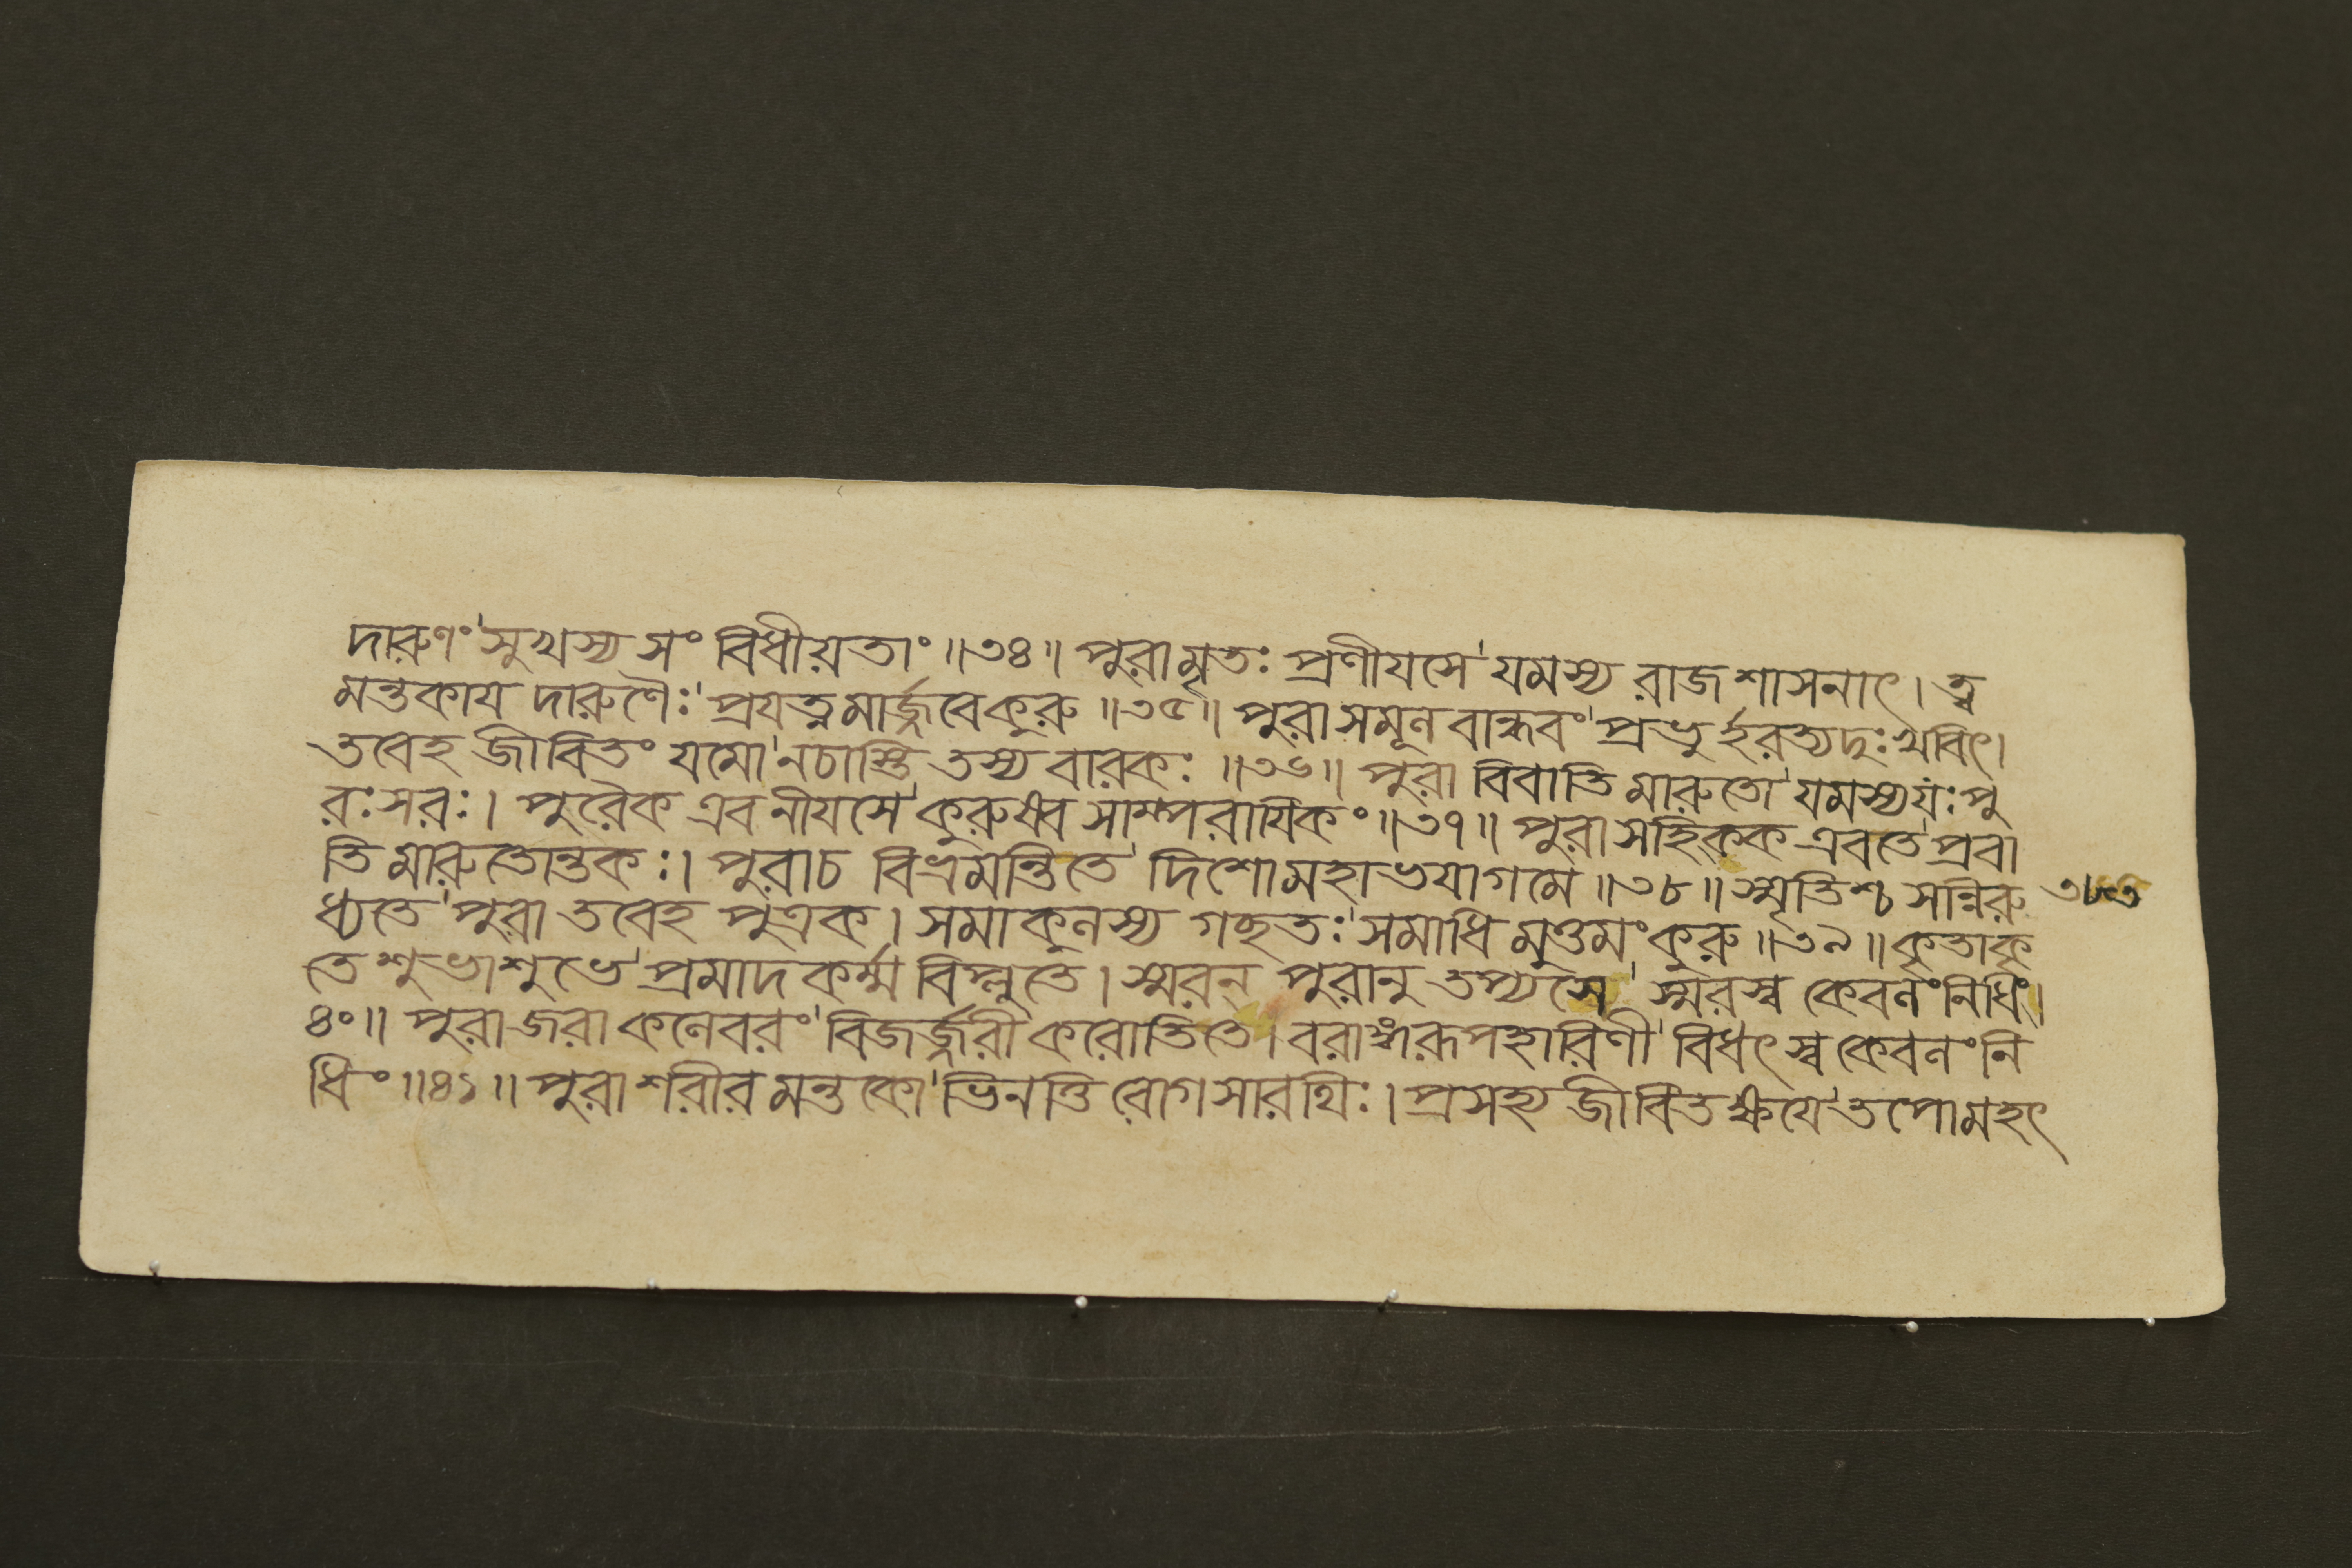 দারুণং সুখস্য সং বিধীয়তাং ॥৩৪॥ পুরামৃতঃ প্রণীযসে যমস্য রাজশাসনাৎ। ত্ব
মন্তকায দারুণৈঃ প্রযত্নমার্জ্জবেকুরু ॥৩৫॥ পুরাসমূলবান্ধবং প্রভুর্হরত্যদুঃখবিৎ।
তবেহ জীবিতং যমো নচাস্তি তস্য বারকঃ ॥৩৬॥ পুরা বিবাতি মারুতো যমস্যযঃ পু
রঃসরঃ। পুরৈক এবনীযসে কুরুষ্ব সাম্পরাযিকং ॥৩৭॥ পুরাসহিকক এবতে প্রবা
তি মারুতোন্তকঃ। পুরাচ বিভ্রমন্তিতে দিশোমহাভযাগমে ॥৩৮॥ স্মৃতিশ্চ সন্নিরু
ধ্যতে পুরা তবেহ পুত্রক। সমাকুলস্য গছতঃ সমাধিমুত্তমং কুরু ॥৩৯॥ কৃতাকৃ
তে শুভাশুভে প্রমাদকর্ম্ম বিপ্লুতে। স্মরন্ পুরানু তপ্যসে স্মরস্ব কেবলং নিধিং।
৪০॥ পুরা জরা কলেবরং বিজর্জ্জরী করোতিতে। বরাঙ্গরূপহারিণী বিধৎস্ব কেবলং নি
ধিং ॥৪১॥ পুরা শরীরমন্তকো ভিনত্তি রোগসারথিঃ। প্রসহ্য জীবিতক্ষযে তপোমহৎ
৩৮৩